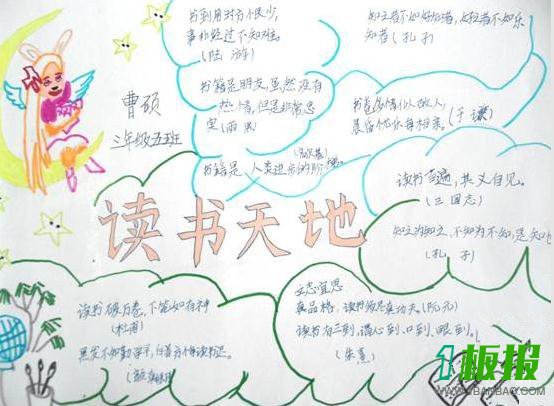 书到用时方恨少,
事非经过不知难。
(陆游)
书籍是朋友,虽然没有
热情,但是非常忠
实(雨果)
书籍是人类进步的阶梯
(高尔基)
知之者不如好知者,好之者不如乐
知者(孔子)
书卷多情似故人,
晨昏忧乐每相亲。(于谦)
读书百遍,其义自见。
(三国志)
知之为知之,不知为不知,是知也
(孔子)
曹硕
三年级五班
读书天地
读书破万卷,下笔如有神
(杜甫)
黑发不知勤学早,白首方悔读书迟。
(颜真卿)
文志宜思
真品格,读书须尽真功夫。(阮元)
读书有三到,谓心到、口到、眼到。
(朱熹)
1板报
WWW.1BANBAO.COM